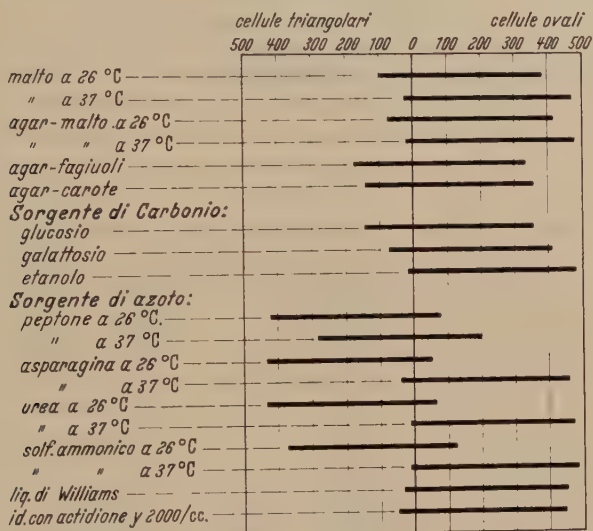 cellule triangolari cellule ovali
500 400 300 200 100 0 100 200 300 400 500
malto a 26 °C
" a 37 °C
agar-malto a 26 °C
" " a 37 °C
agar-fagiuoli
agar-carote
Sorgente di Carbonio:
glucosio
galattosio
etanolo
Sorgente di azoto:
peptone a 26 °C.
" a 37 °C
asparagina a 26 °C
" a 37 °C
urea a 26 °C
" a 37 °C
solf. ammonico a 26 °C
" " a 37 °C
liq. di Williams
id. con actidione γ 2000/cc.